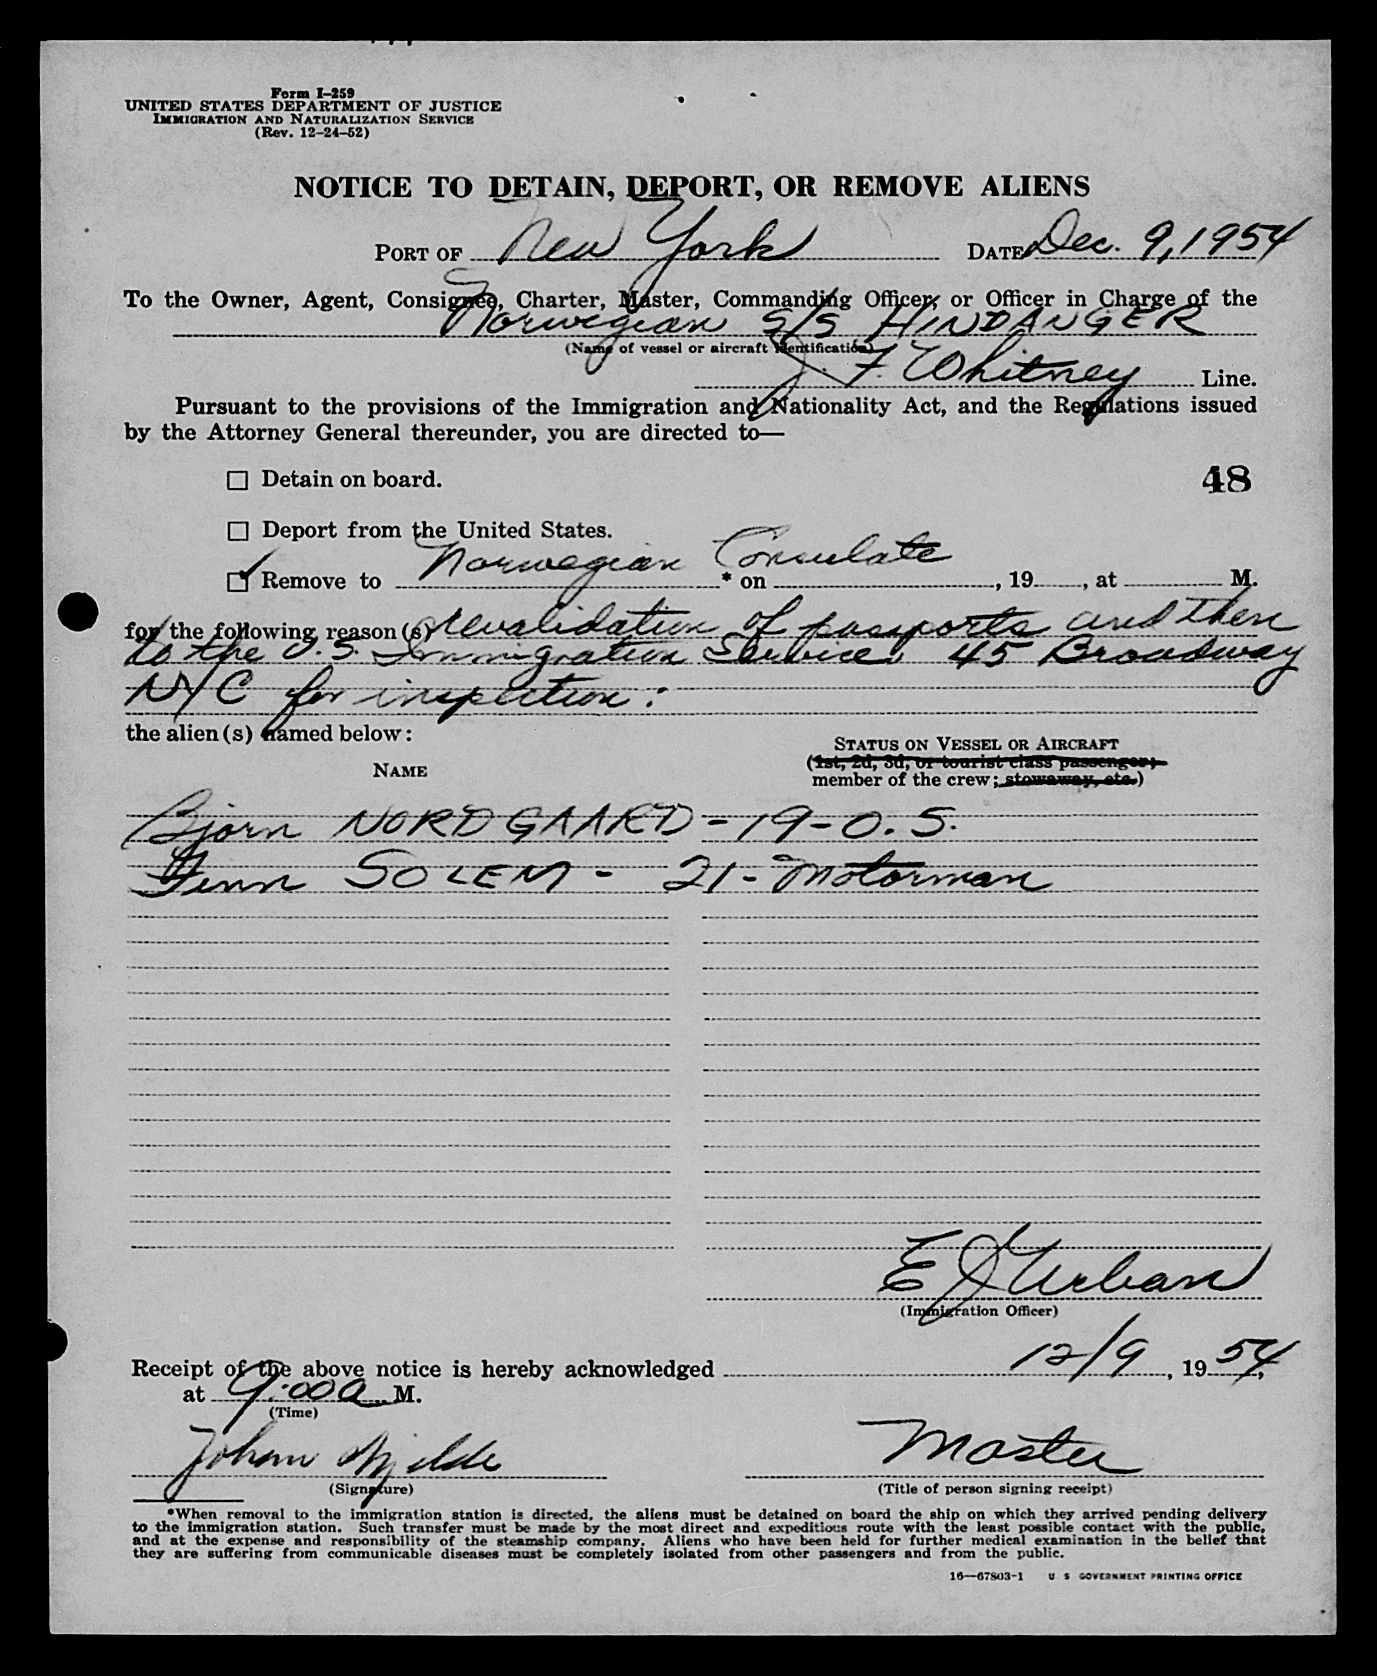 Form I-259
UNITED STATES DEPARTMENT OF JUSTICE
IMMIGRATION AND NATURALIZATION SERVICE
(Rev. 12-24-52)
NOTICE TO DETAIN, DEPORT, OR REMOVE ALIENS
PORT OF New York DATE Dec. 9, 1954
To the Owner, Agent, Consignee, Charter, Master, Commanding Officer, or Officer in Charge of the
Norwegian S/S HINDANGER
(Name of vessel or aircraft identification)
J. F. Whitney Line.
Pursuant to the provisions of the Immigration and Nationality Act, and the Regulations issued
by the Attorney General thereunder, you are directed to—
☐ Detain on board.
48
☐ Deport from the United States.
☑ Remove to Norwegian Consulate * on , 19 , at M.
for the following reason(s) revalidation of passports and then
to the U.S. Immigration Service, 45 Broadway
NYC for inspection:
the alien(s) named below:
STATUS ON VESSEL OR AIRCRAFT
NAME
(1st, 2d, 3d, or tourist class passenger;
member of the crew; stowaway, etc.)
Bjorn NORDGAARD - 19 - O.S.
Finn SOLEM - 21 - Motorman
E J Urban
(Immigration Officer)
Receipt of the above notice is hereby acknowledged 12/9, 19 54,
at 9:00 a M.
(Time)
Johan Master
(Signature) (Title of person signing receipt)
*When removal to the immigration station is directed, the aliens must be detained on board the ship on which they arrived pending delivery
to the immigration station. Such transfer must be made by the most direct and expeditious route with the least possible contact with the public,
and at the expense and responsibility of the steamship company. Aliens who have been held for further medical examination in the belief that
they are suffering from communicable diseases must be completely isolated from other passengers and from the public.
16—67803-1 U S GOVERNMENT PRINTING OFFICE